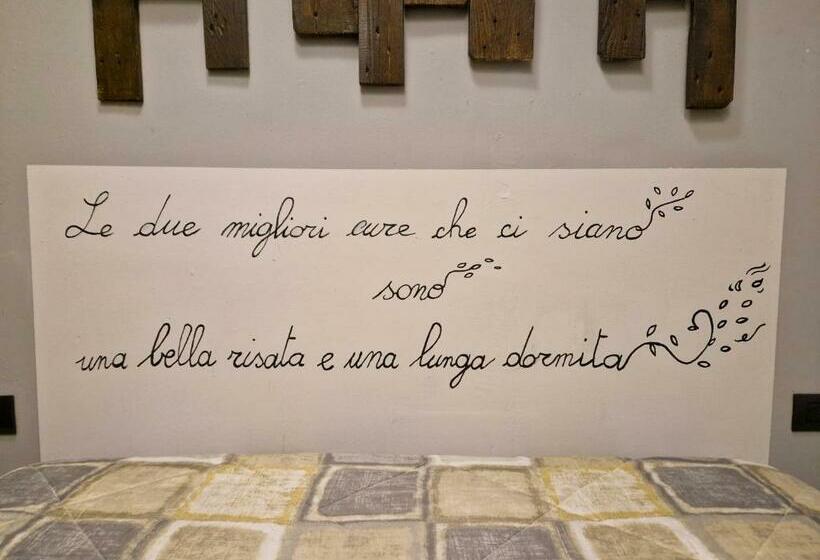 Le due migliori cure che ci siano
sono
una bella risata e una lunga dormita